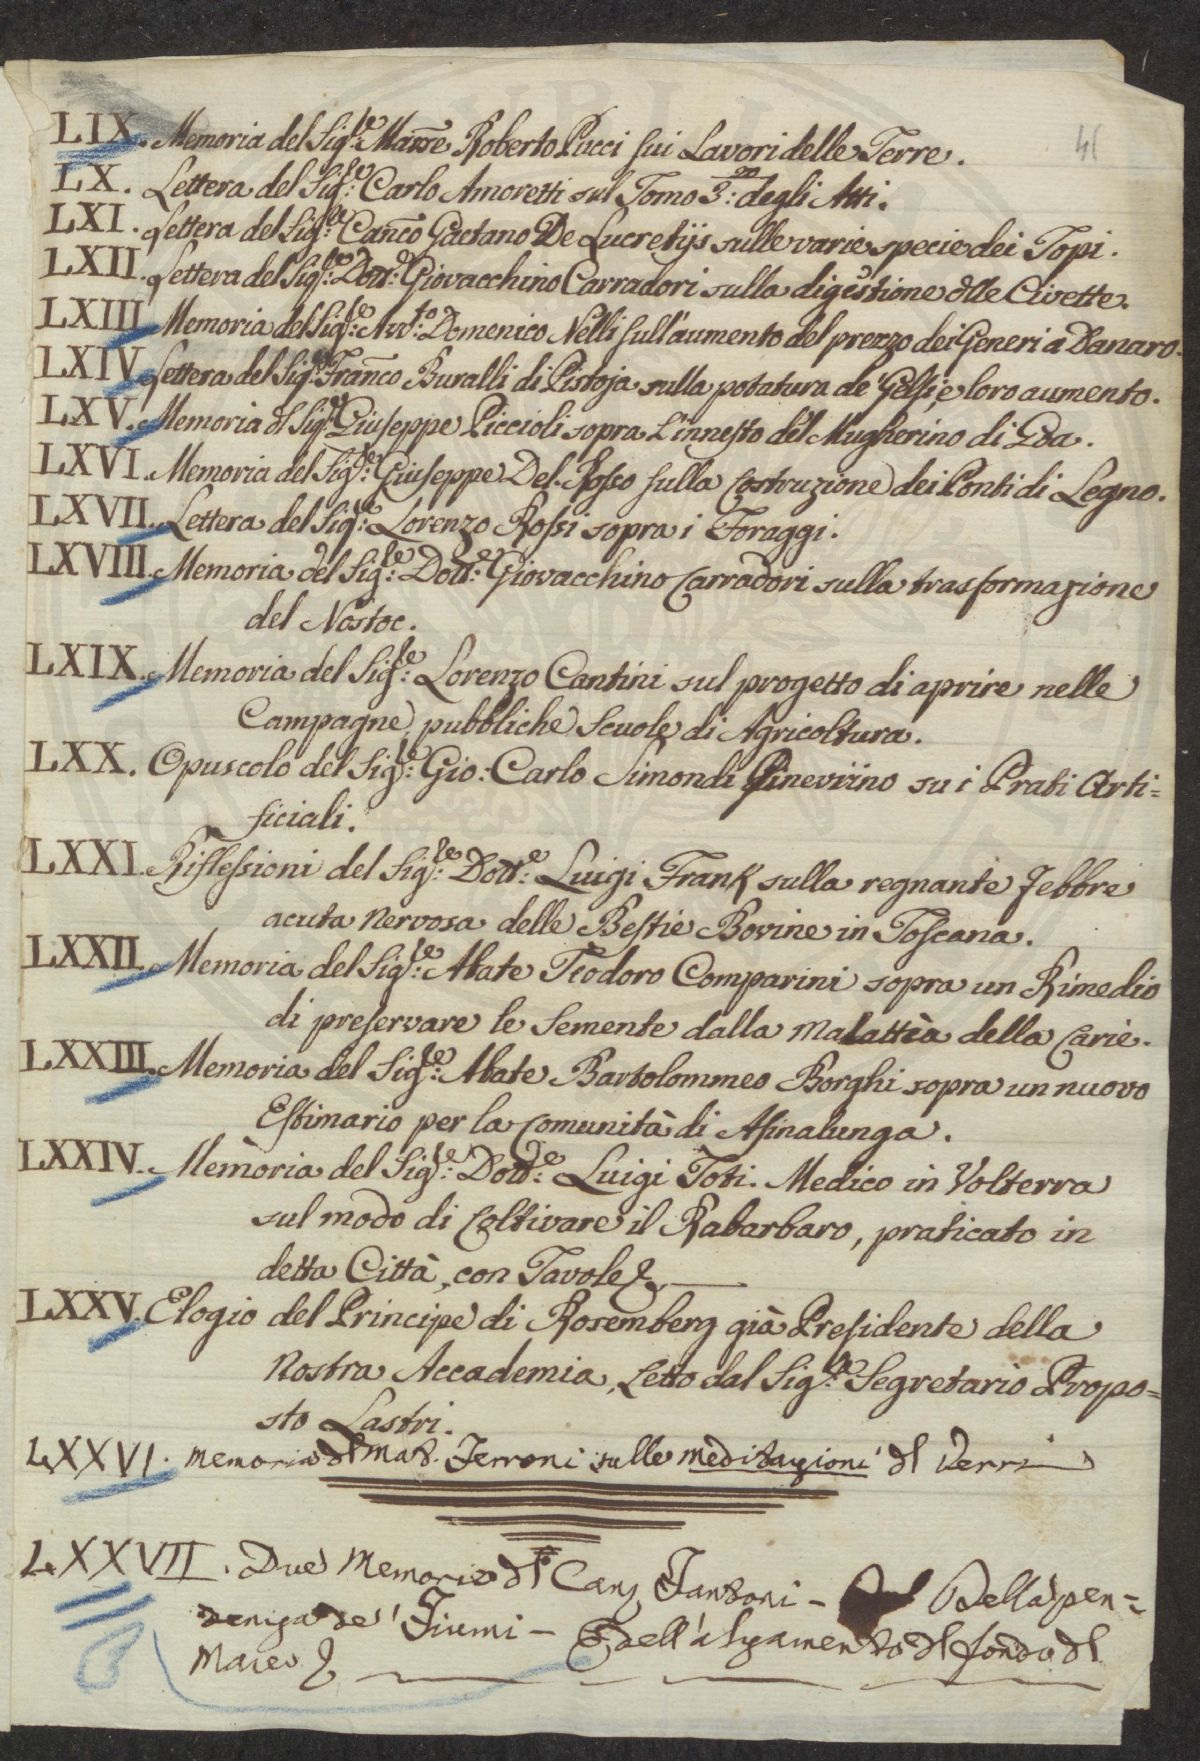 41
LIX. Memoria del Sig.re Marre Roberto Pucci sui Lavori delle Terre.
LX. Lettera del Sig.re Carlo Amoretti sul Tomo 3.zo degli Atti.
LXI. Lettera del Sig.re Canco Gaetano De Lucretijs sulle varie specie dei Topi.
LXII. Lettera del Sig.re Dott.e Giovacchino Carradori sulla digestione dlle Civette.
LXIII Memoria del Sig.re Avv.to Domenico Nelli sull'aumento del prezzo dei Generi a Danaro.
LXIV. Lettera del Sig.re Franco Buralli di Pistoja sulla potatura de' Gelsi, e loro aumento.
LXV. Memoria dl Sig.re Giuseppe Piccioli sopra L'innesto del Mugherino di Goa.
LXVI. Memoria del Sig.re Giuseppe Del Rosso sulla Costruzione dei Ponti di Legno.
LXVII. Lettera del Sig.re Lorenzo Rossi sopra i Foraggi.
LXVIII. Memoria del Sig.re Dott.e Giovacchino Carradori sulla trasformazione
del Nostoc.
LXIX. Memoria del Sig.re Lorenzo Cantini sul progetto di aprire nelle
Campagne pubbliche Scuole di Agricoltura.
LXX. Opuscolo del Sig.re Gio: Carlo Simondi Ginevrino su i Prati Arti=
ficiali.
LXXI. Riflessioni del Sig.re Dott.e Luigi Frank sulla regnante Febbre
acuta nervosa delle Bestie Bovine in Toscana.
LXXII. Memoria del Sig.re Abate Teodoro Comparini sopra un Rimedio
di preservare le Semente dalla Malattia della Carie.
LXXIII. Memoria del Sig.re Abate Bartolommeo Borghi sopra un nuovo
Estimario per la Comunità di Asinalunga.
LXXIV. Memoria del Sig.re Dott.e Luigi Toti. Medico in Volterra
sul modo di Coltivare il Rabarbaro, praticato in
detta Città, con Tavole
LXXV. Elogio del Principe di Rosemberg già Presidente della
Nostra Accademia, Letto dal Sig.re Segretario Propo=
sto Lastri.
LXXVI. Memoria dl Mat. Ferroni sulle meditazioni dl Verri
LXXVII. Due Memorie dl Canc Fantoni - Della pen=
denza de' Fiumi - E dell'alzamento dl fondo dl
Mare